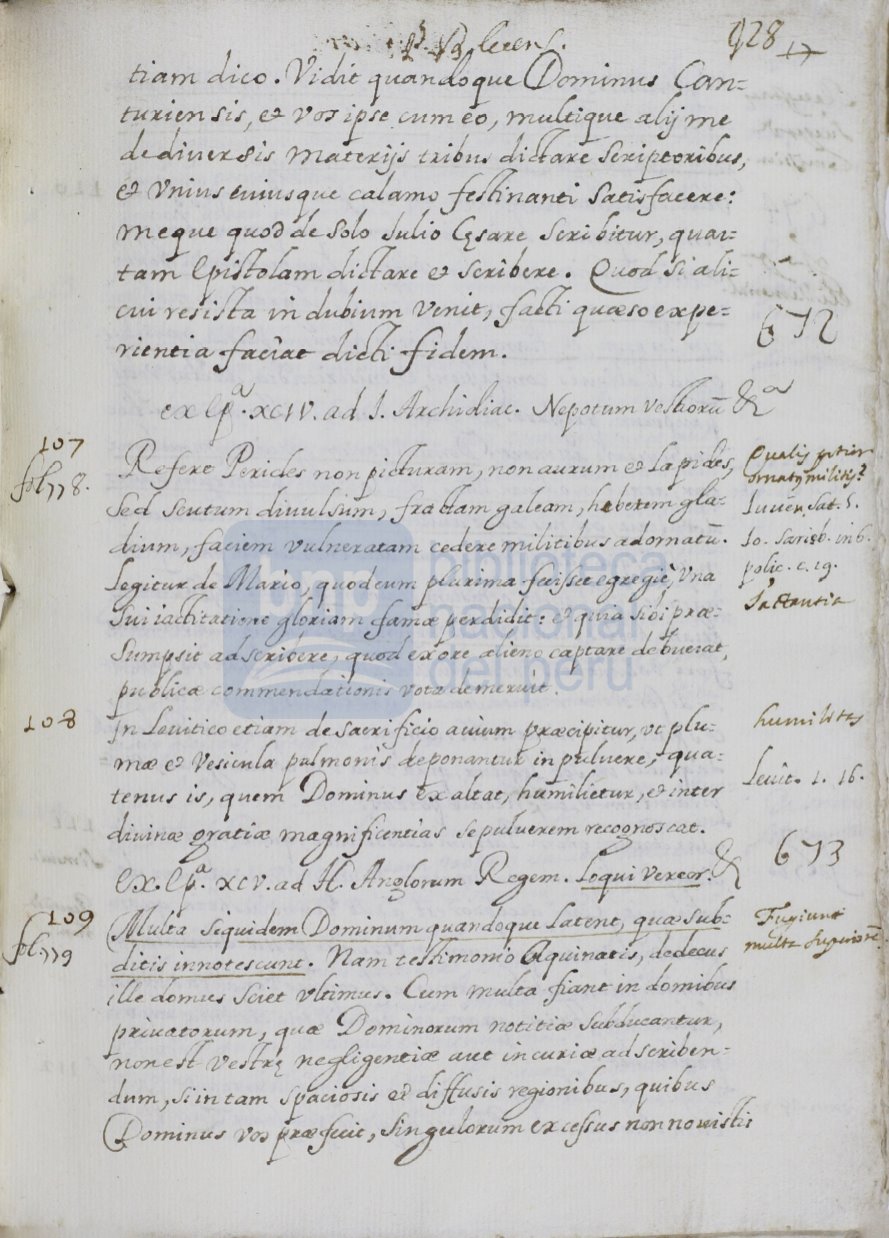 P. Blesens.
928
17
tiam dico. Vidit quandoque Dominus Can=
turiensis, et vos ipse cum eo, multique alij me
de diuersis materijs tribus dictare scriptoribus,
et vnius cuiusque calamo festinanti satisfacere:
meque quod de solo Iulio Cęsare scribitur, quar-
tam Epistolam dictare et scribere. Quod si ali=
cui res ista in dubium venit, facti quæso expe=
rientia faciat dicti fidem.
672
ex Epª. XCIV. ad I. Archidiac. Nepotum vestrorū &ª
107
fol 778.
Refert Pericles non picturam, non aurum et lapides,
sed scutum diuulsum, fractam galeam, hebetem gla-
dium, faciem vulneratam cedere militibus adornatū.
Legitur de Mario, quod eum plurima fecisse egregiè, vna
sui iactitatione gloriam famæ perdidit: et quia sibi præ=
sumpsit adscribere, quod ex ore alieno captare debuerat,
publicæ commendationis vota demeruit.
ornatꝰ militis?
Iuuen. Sat. 1.
Io. Sarisb. in 6.
polic. c. 19.
Iactantia
108
In Leuitico etiam de sacrificio auium præcipitur, vt plu-
mæ et vesicula pulmonis deponantur in puluere, qua=
tenus is, quem Dominus exaltat, humilietur, et inter
diuinæ gratiæ magnificentias se puluerem recognoscat.
humilitas
Leuit. 1. 16.
673
Ex. Epª. XCV. ad H. Anglorum Regem. Loqui vereor. &
109
fol. 779
Multa siquidem Dominum quandoque latent, quæ sub=
ditis innotescunt. Nam testimonio Aquinatis, dedecus
ille domus sciet vltimus. Cum multa fiant in domibus
priuatorum, quæ Dominorum notitiæ subducantur,
non est vestrę negligentiæ aut incuriæ adscriben-
dum, si in tam spaciosis et diffusis regionibus, quibus
Dominus vos præfecit, singulorum excessus non nouistis
Fugiunt
multa superiorē
bnp
biblioteca
nacional
del perú